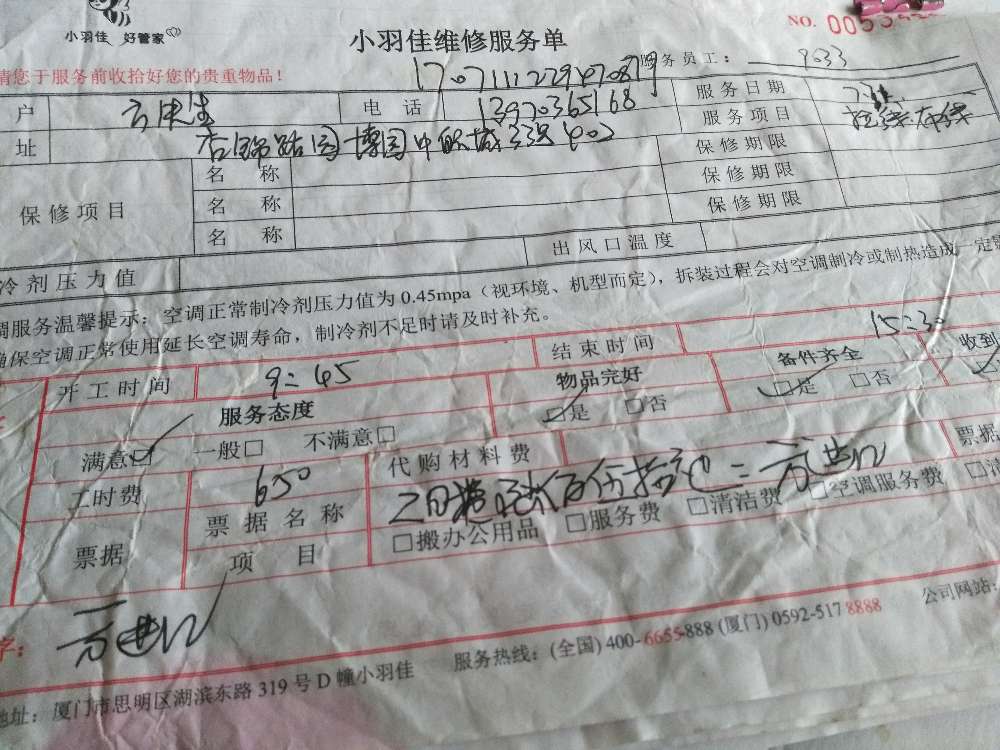 小羽佳 好管家
小羽佳维修服务单
NO. 005
请您于服务前收拾好您的贵重物品！
服务员工： 9033
户 电话 13970365168 服务日期
址 服务项目
保修项目 名称 保修期限
名称 保修期限
名称 保修期限
冷剂压力值 出风口温度
调服务温馨提示：空调正常制冷剂压力值为0.45mpa（视环境、机型而定），拆装过程会对空调制冷或制热造成一定
确保空调正常使用延长空调寿命，制冷剂不足时请及时补充。
开工时间 9:45 结束时间 15:30
服务态度 物品完好 备件齐全 收到
满意□ 一般□ 不满意□ □是 □否 □是 □否
工时费 650 代购材料费 票据
票据 票据名称 □搬办公用品 □服务费 □清洁费 □空调服务费
项目
字：
地址：厦门市思明区湖滨东路319号D幢小羽佳 服务热线：(全国) 400-6655-888 (厦门) 0592-517 8888 公司网站：